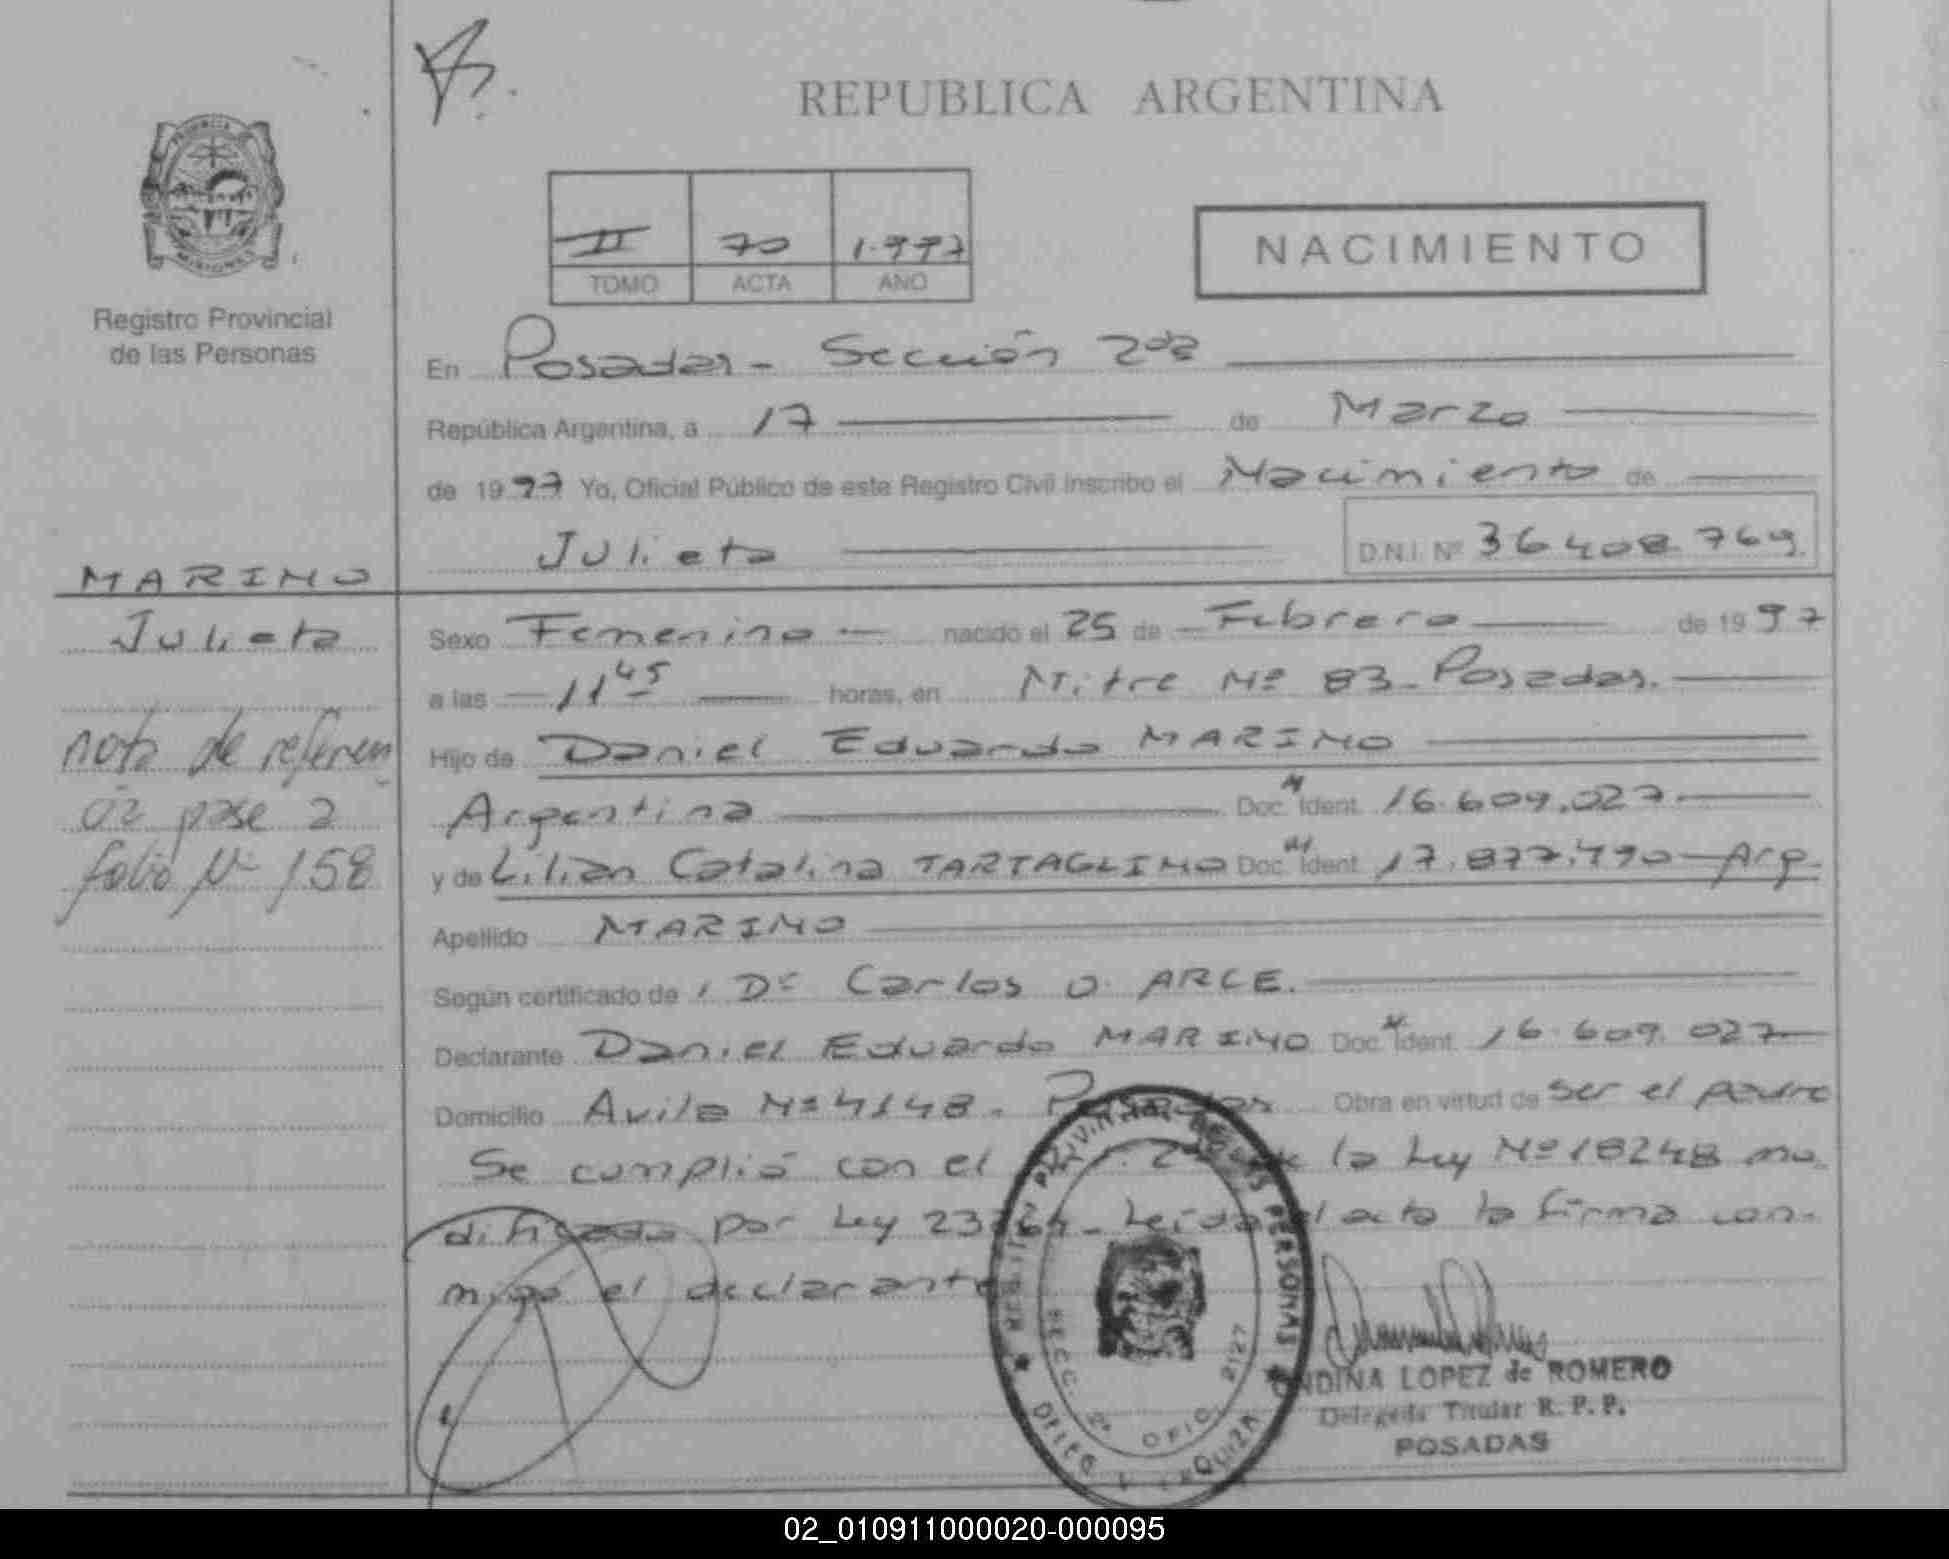 REPUBLICA ARGENTINA
PROVINCIA
MISIONES
Registro Provincial
de las Personas
II 70 1.997
TOMO ACTA AÑO
NACIMIENTO
En Posadas - Sección 2da
República Argentina, a 17 de Marzo
de 1997 Yo, Oficial Público de este Registro Civil inscribo el Nacimiento de
Julieta D.N.I. Nº 36408769.
MARINO
Julieta
nota de referen
cia pase a
folio Nº 158
Sexo Femenino nacido el 25 de Febrero de 1997
a las 11 45 horas, en Mitre Nº 83 - Posadas.
Hijo de Daniel Eduardo MARINO
Argentina Doc. Ident. 16.609.027
y de Lilian Catalina TARTAGLINO Doc. Ident. 17.877.790 - Arg.
Apellido MARINO
Según certificado de Dr Carlos O. ARCE.
Declarante Daniel Eduardo MARINO Doc. Ident. 16.609.027
Domicilio Avila Nº 4148. Posadas Obra en virtud de ser el padre
Se cumplió con el 2 de la Ley Nº 18248 mo
dificado por Ley 23264 - Leida el acta la firma con-
migo el declarante
PROVINCIAL DE LAS PERSONAS
SECC. 2ª OFIC. 2127
DPTO L. URQUIZA
ONDINA LOPEZ de ROMERO
Delegada Titular R. P. P.
POSADAS
02_010911000020-000095